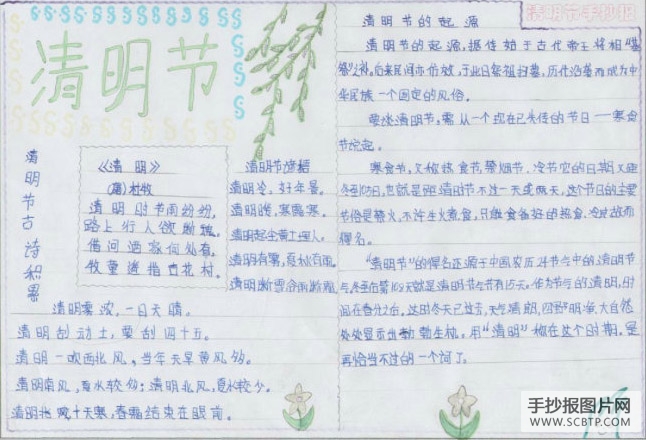 清明节手抄报
清明节
清明节古诗积累
《清明》
(唐)杜牧
清明时节雨纷纷,
路上行人欲断魂。
借问酒家何处有,
牧童遥指杏花村。
清明节谚语
清明冷,好年景。
清明暖,寒露寒。
清明起尘黄土埋人。
清明有雾,夏秋有雨。
清明断雪谷雨断霜
清明雾浓,一日天晴。
清明刮动土,要刮四十五。
清明一吹西北风,当年天旱黄风多。
清明南风,夏水较多;清明北风,夏水较少。
清明北风十天寒,春霜结束在眼前。
清明节的起源
清明节的起源,据传始于古代帝王将相"墓
祭"之礼,后来民间亦仿效,于此日祭祖扫墓,历代沿袭而成为中
华民族一个固定的风俗。
要谈清明节,需从一个现在已失传的节日—寒食
节说起。
寒食节,又称熟食节、禁烟节、冷节它的日期又距
冬至105日,也就是距清明节不过一天或两天,这个节日的主要
节俗是禁火,不许生火煮食,只能食备好的熟食、冷食故而
得名。
"清明节"的得名还源于中国农历24节气中的清明节
气,冬至后第105天就是清明节气节有15天。作为节气的清明,时
间在春分之后,这时冬天已过去,天气清朗,四野明净,大自然
处处显示出勃勃生机。用"清明"称在这个时期,是
再恰当不过的一个词了。
手抄报图片网
WWW.SCBTP.COM